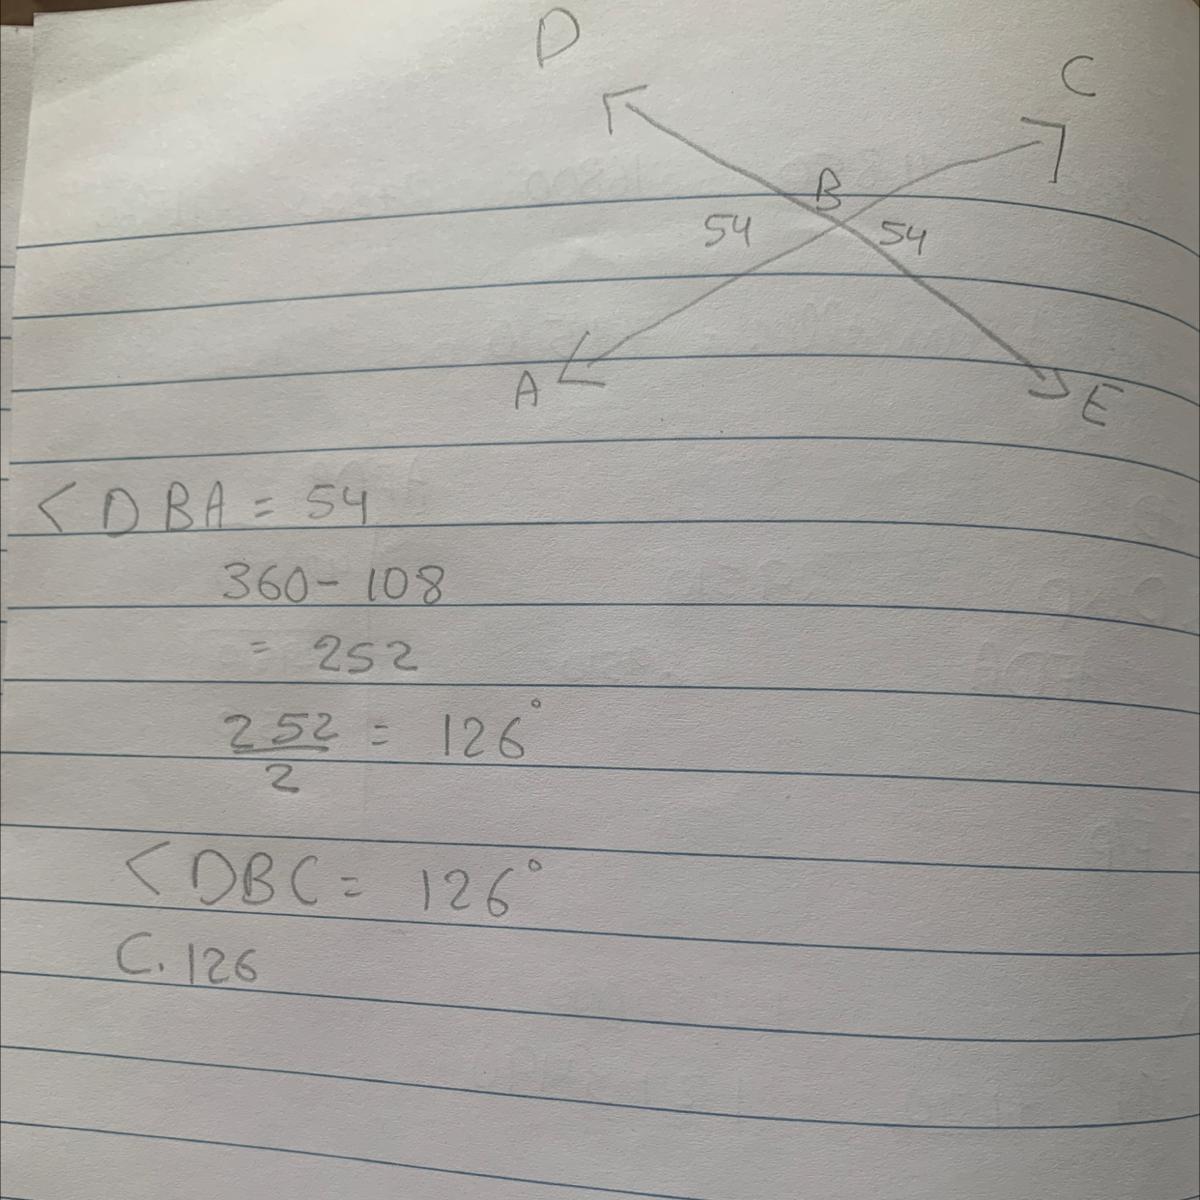 D
C
B
54
54
A
E
<DBA = 54
360 - 108
= 252
252/2 = 126°
<DBC = 126°
C. 126